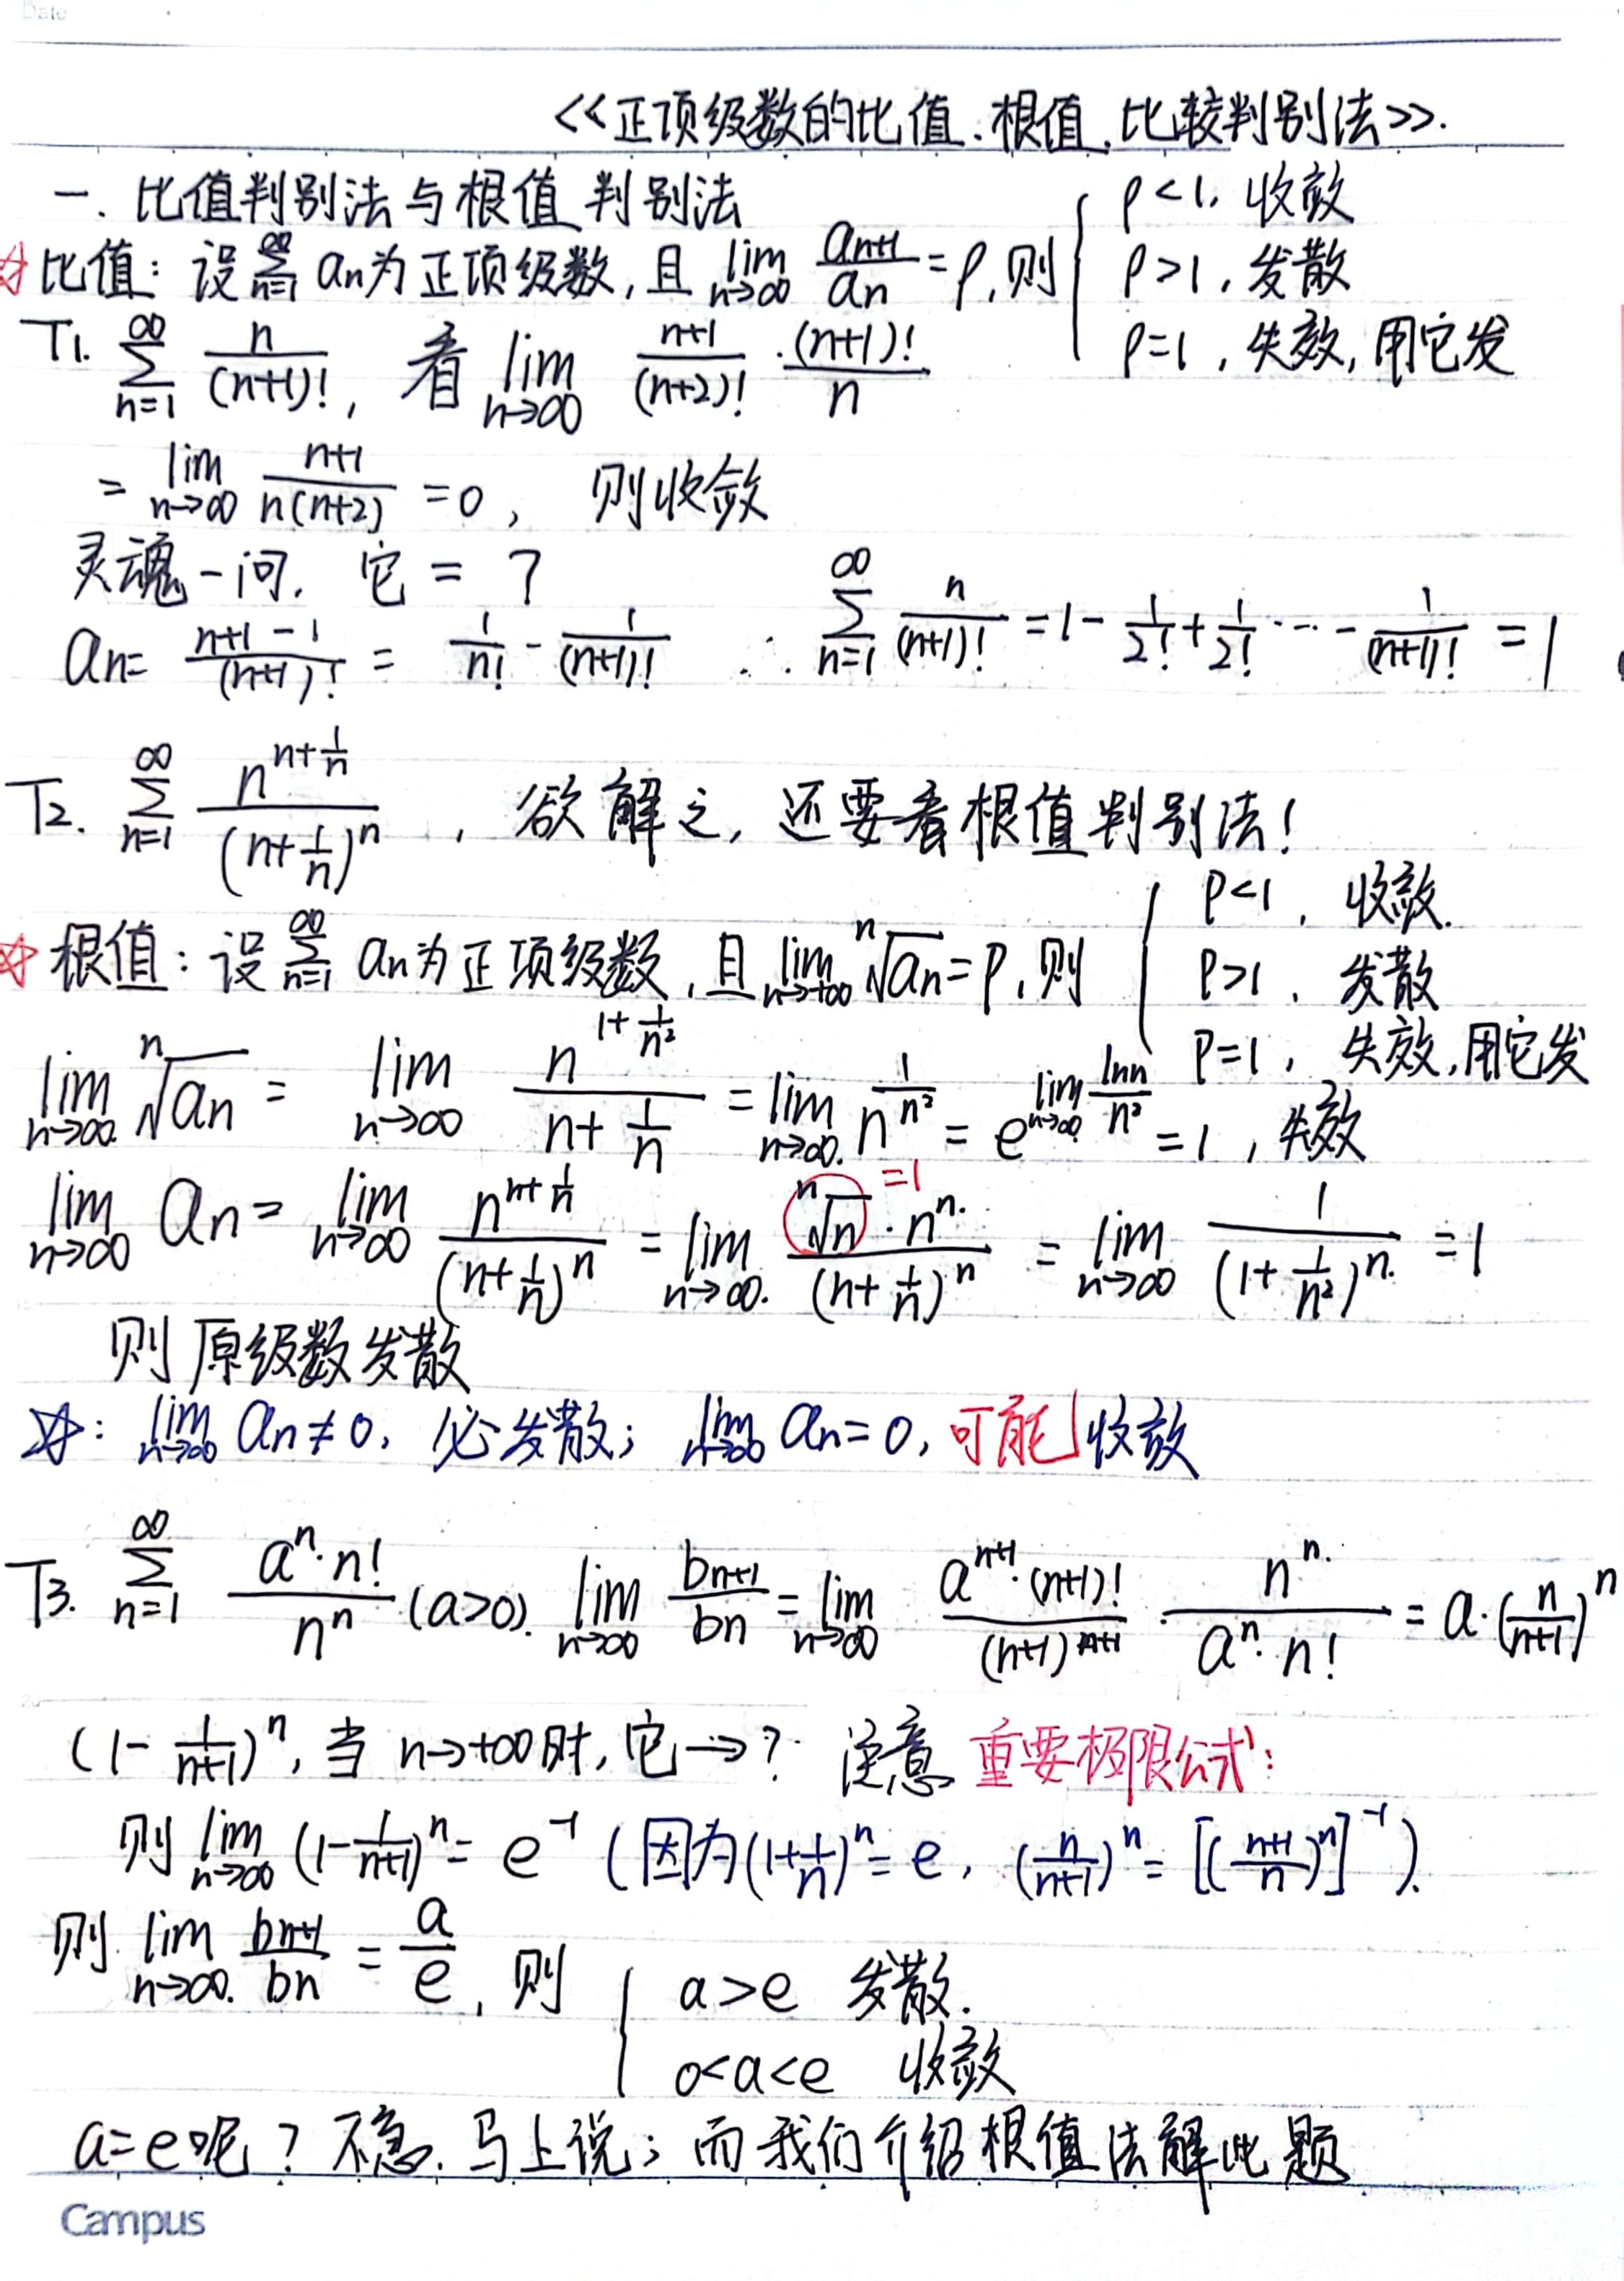 Date
<<正项级数的比值.根值.比较判别法>>.
一. 比值判别法与根值判别法
☆比值: 设 ∑_{n=1}^{∞} an为正项级数, 且 lim_{n→∞} a_{n+1}/a_n = ρ, 则 { ρ<1, 收敛
ρ>1, 发散
ρ=1, 失效, 用它发
T1. ∑_{n=1}^{∞} n/(n+1)!, 看 lim_{n→∞} (n+1)/(n+2)! · (n+1)!/n
= lim_{n→∞} (n+1)/(n(n+2)) = 0, 则收敛
灵魂一问. 它 = ?
an = (n+1-1)/(n+1)! = 1/n! - 1/(n+1)! ∴ ∑_{n=1}^{∞} n/(n+1)! = 1 - 1/2! + 1/2! ... - 1/(n+1)! = 1
T2. ∑_{n=1}^{∞} n^{n+1/n}/(n+1/n)^n, 欲解之, 还要看根值判别法!
☆根值: 设 ∑_{n=1}^{∞} an为正项级数, 且 lim_{n→+∞} ⁿ√an = ρ, 则 { ρ<1, 收敛.
ρ>1, 发散
ρ=1, 失效, 用它发
lim_{n→∞} ⁿ√an = lim_{n→∞} n^{1+1/n²}/(n+1/n) = lim_{n→∞} n^{1/n²} = e^{lim_{n→∞} lnn/n²} = 1, 失效
lim_{n→∞} an = lim_{n→∞} n^{n+1/n}/(n+1/n)^n = lim_{n→∞} ⁿ√n · n^n/(n+1/n)^n = lim_{n→∞} 1/(1+1/n²)^n = 1
=1
则原级数发散
☆: lim_{n→∞} an ≠ 0, 必发散; lim_{n→∞} an = 0, 可能收敛
T3. ∑_{n=1}^{∞} a^n·n!/n^n (a>0). lim_{n→∞} b_{n+1}/b_n = lim_{n→∞} a^{n+1}·(n+1)!/(n+1)^{n+1} · n^n/(a^n·n!) = a·(n/(n+1))^n
(1 - 1/(n+1))^n, 当 n→+∞时, 它→? 注意 重要极限公式:
则 lim_{n→∞} (1 - 1/(n+1))^n = e^{-1} (因为(1+1/n)^n = e, (n/(n+1))^n = [((n+1)/n)^n]^{-1}).
则 lim_{n→∞} b_{n+1}/b_n = a/e, 则 { a>e 发散.
0<a<e 收敛
a=e呢? 不急. 马上说; 而我们介绍根值法解此题
Campus